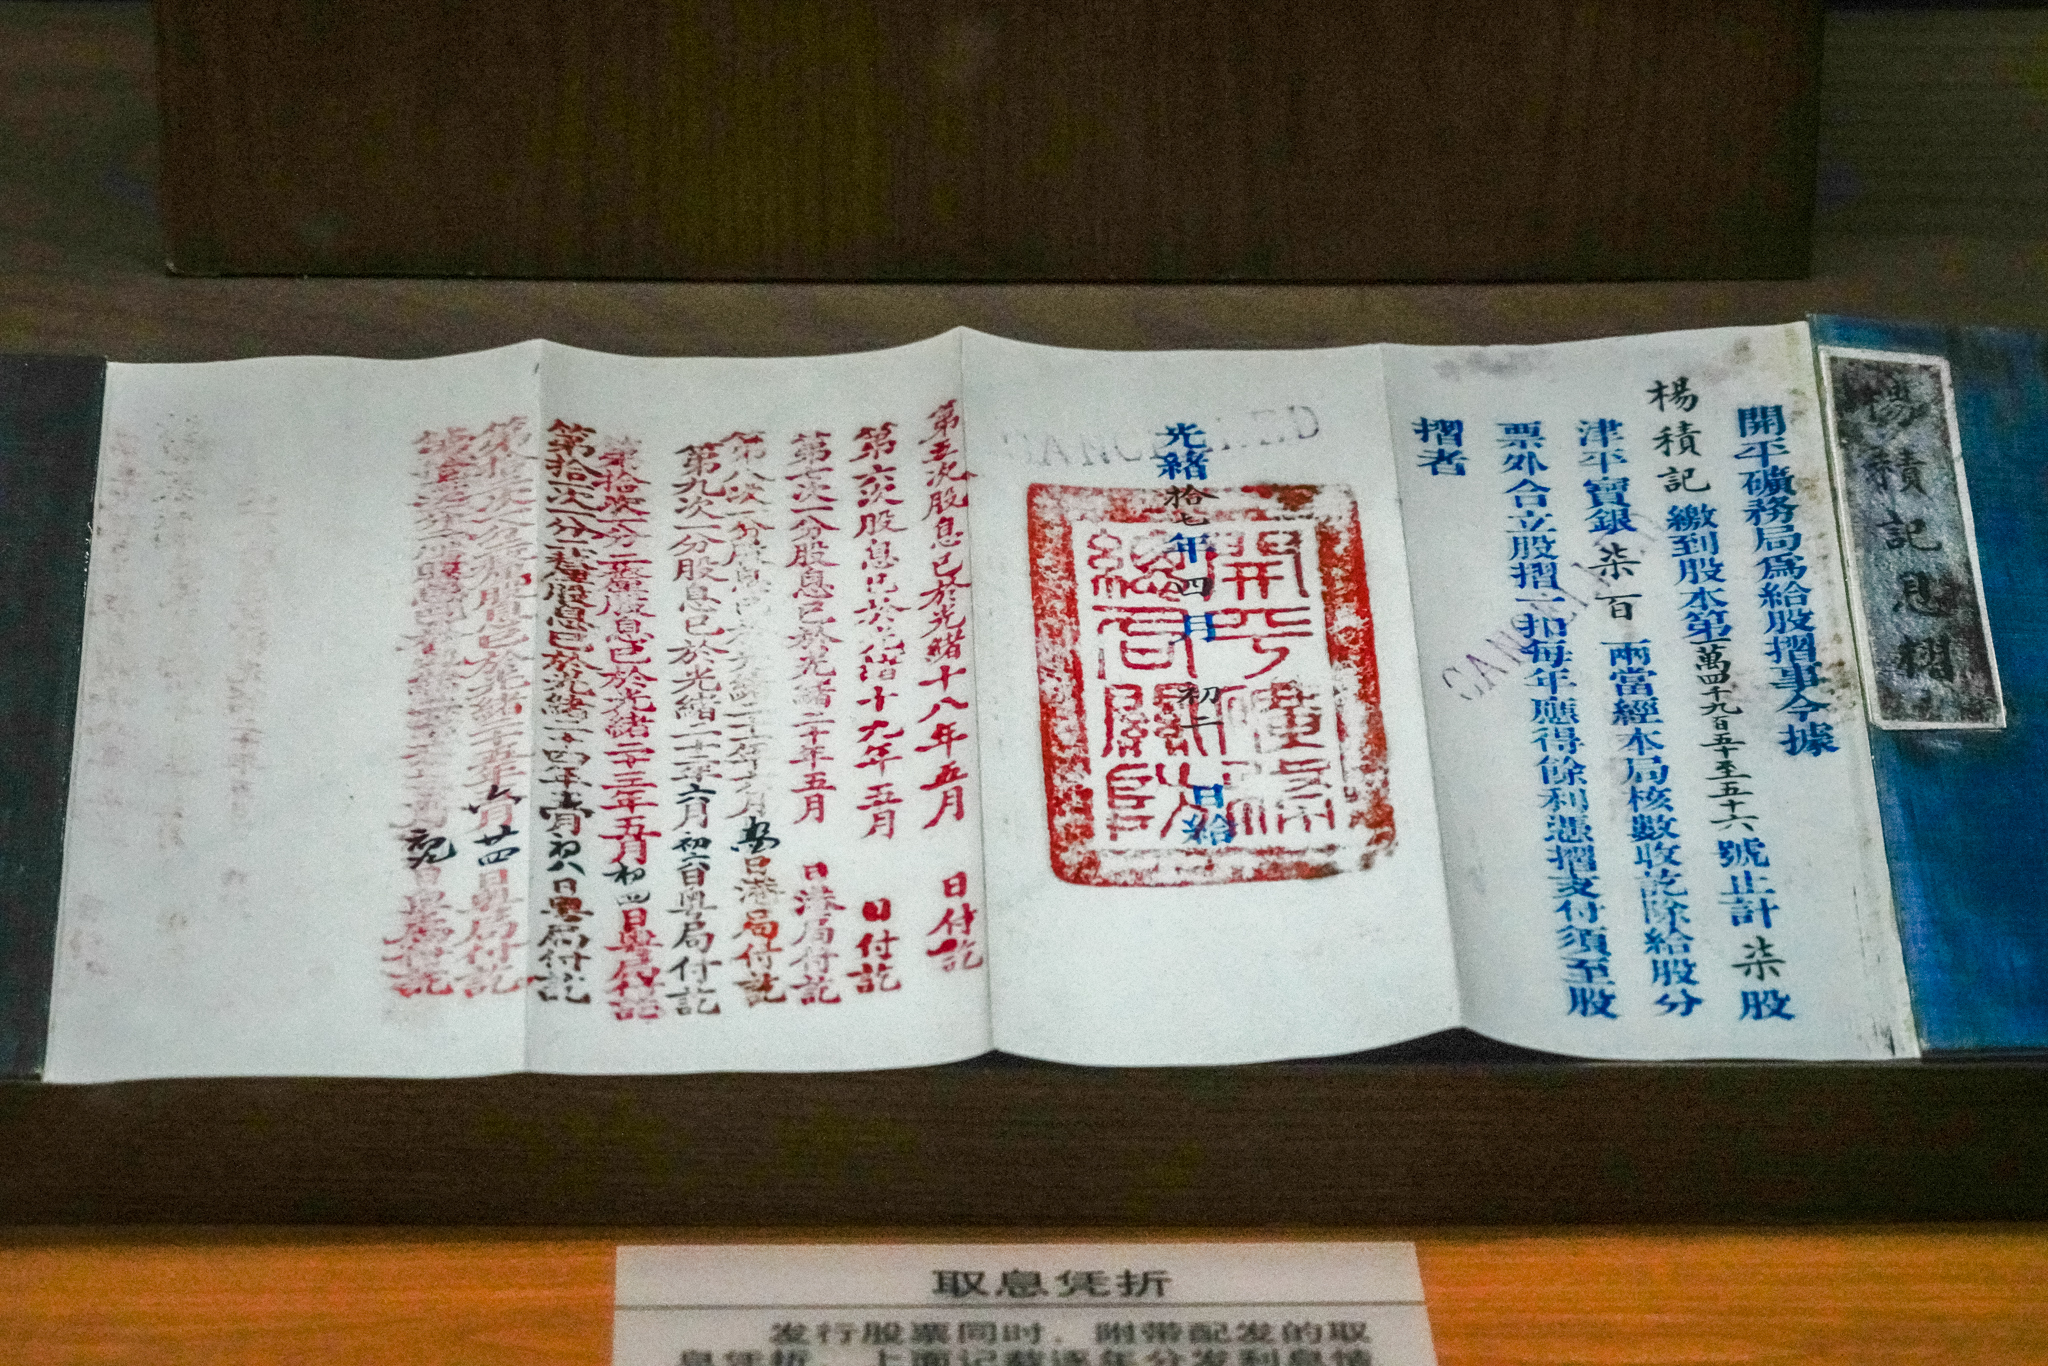 楊積記息摺
開平礦務局為給股摺事今據
楊積記繳到股本第一萬四千九百五十至五十六號止計柒股
津平寶銀柒百兩當經本局核數收訖除給股分
票外合立股摺一扣每年應得餘利憑摺支付須至股
摺者
CANCELLED
光緒拾七年四月初二日給
開平礦務
總局關防
第五次股息已於光緒十八年五月日付訖
第六次股息已於光緒十九年五月日付訖
第七次一分股息已於光緒二十年五月日滬局付訖
第八次一分股息已於光緒二十一年六月日滬局付訖
第九次一分股息已於光緒二十二年六月初六日粵局付訖
第拾次一分二釐股息已於光緒二十三年五月初四日粵局付訖
第拾一次一分二釐股息已於光緒二十四年月初八日粵局付訖
第拾二次一分股息已於光緒二十五年六月廿四日粵局付訖
日粵局付訖
取息凭折
发行股票同时，附带配发的取
息凭折，上面记载逐年分发利息情